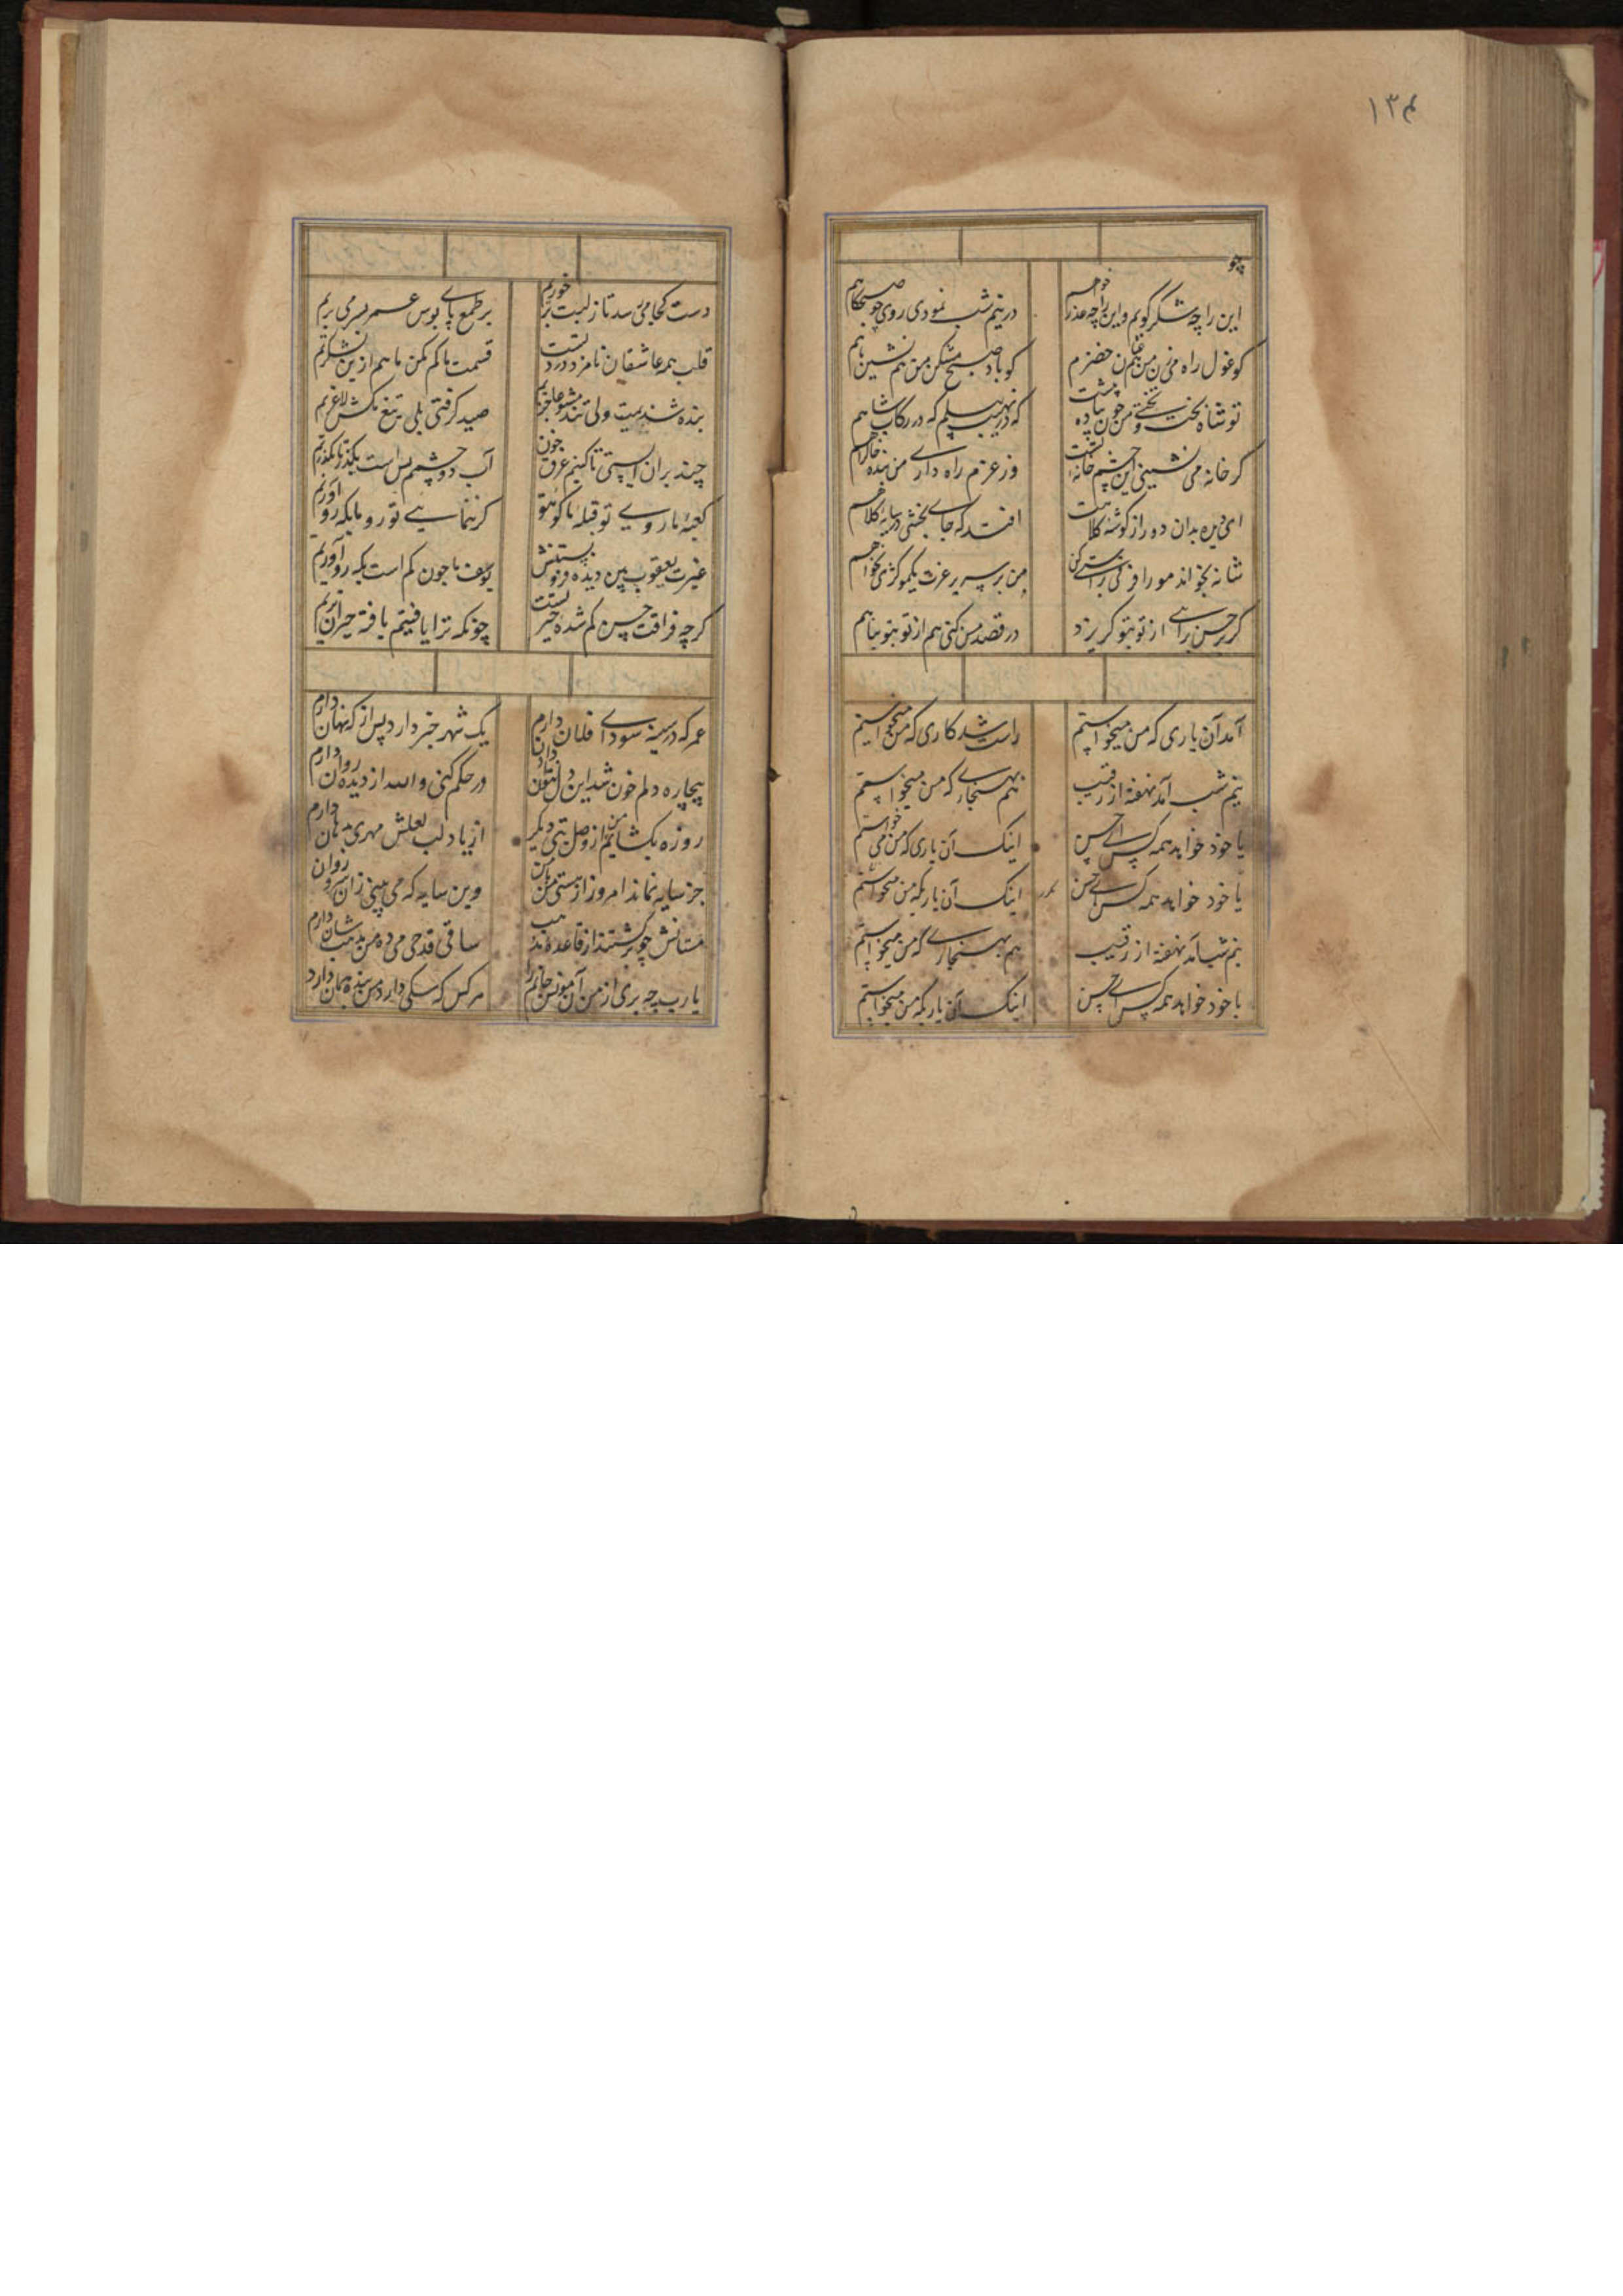 ۱۳۴
چو
این را چه شکر گویم و این را چه عذر خواهم
در نیم شب نمودی روی چو صبحگاهم
کو غول راه من من خضرم
کو باد صبح مشکن من هم نشین ماهم
تو شاه تخت و بختی من چون پیاده پیشت
که در رکاب شاهم
گر خانه می نشینی این چشم خانه تست
وز عزم راه داری من بنده خاک راهم
ای دیده بدان ده راز گوشه کلاهت
افتد که جای بخشی در سایه کلاهم
شانه بخواند مو را
من بر سریر عزت یکمو کژی نخواهم
گر حسن برای از تو بتو گریزد
در قصد من کنی هم از تو بتو پناهم
آمد آن یاری که من میخواستم
راست شد کاری که من میخواستم
نیم شب آمد نهفته از رقیب
هم بهنجاری که من میخواستم
با خود خواهد همه کس ای حسن
اینک آن یاری که من می خواستم
یا خود خواهد همه کس ای حسن
اینک آن یاریکه من میخواستم
نیم شب آمد نهفته از رقیب
هم بهنجاری که من میخواستم
با خود خواهد همه کس ای حسن
اینک آن یاریکه من میخواستم
دست کجا می رسد تا ز لبت بر خوریم
بر طمع پای بوس عمر بسر می بریم
قلب همه عاشقان نامزد درد تست
قسمت ما کم مکن ما هم ازین لشکریم
بنده شدیمت ولی تند مشو عاجزیم
صید گرفتی بلی تیغ مکش لاغریم
چند بران ایستی تا کنیم غرق خون
آب دو چشمم بس است بگذر تا بگذریم
کعبه ما روی تو قبله ما کوی تو
گر ننمایی تو رو ما بکه رو آوریم
غیرت یعقوب بین دیده فرو بستنش
یوسف ما چون کم است بکه رو آوریم
گرچه فراقت حسن گم شده خیر تست
چونکه ترا یافتیم یافته خیران تریم
عمر که در سینه سودای فلان دارم
یک شهر خبر دارد پس از که نهان دارم
بیچاره دلم خون شد این
ور حکم کنی والله از دیده روان دارم
روزه بکشایم من از وصل بتی دیگر
از یاد لب لعلش مهری بدهان دارم
جز سایه نماند امروز از هستی من باقی
وین سایه که می بینی زان سرو روان دارم
مستانش چو برگشتند از قاعده مذهب
ساقی قدحی می ده من مذهب شان دارم
یا رب چه بری از من آن مونس جانم را
هر کس که کسی دارد من بنده همان دارد